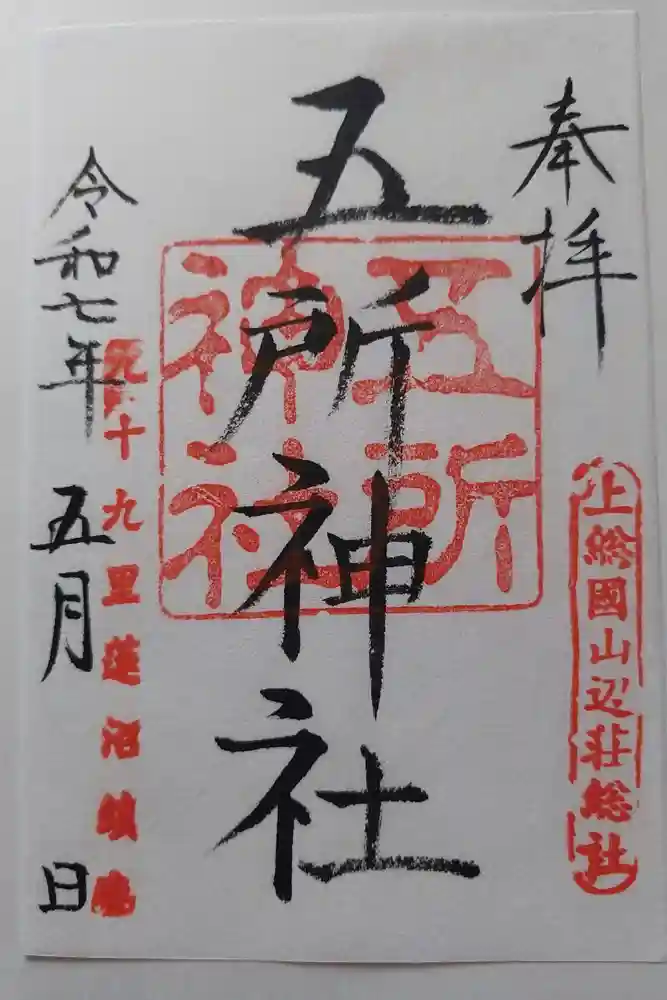 奉拝
上総國山辺荘総社
五所神社
五所神社
九十九里蓮沼鎮
令和七年五月 日